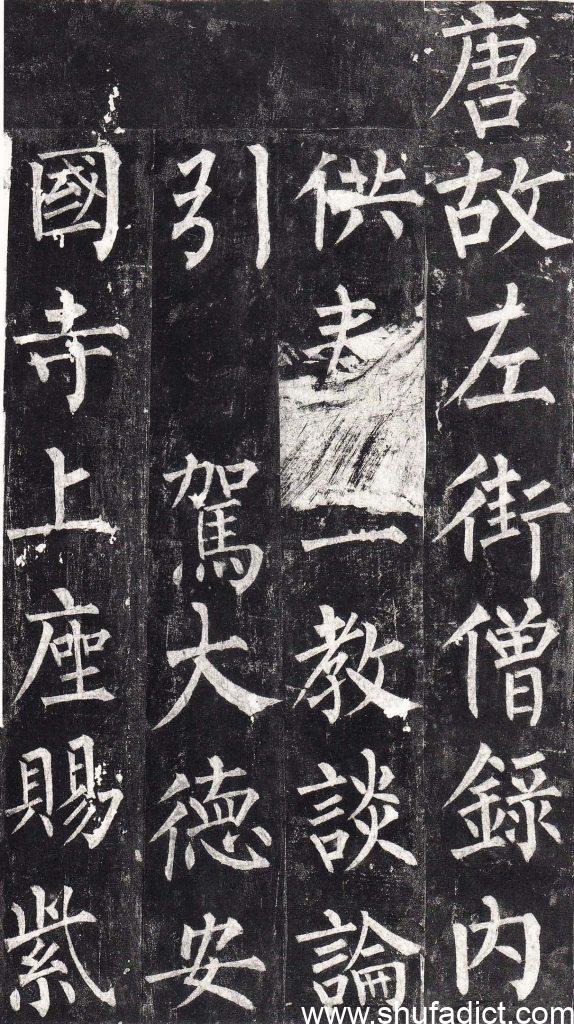 唐故左街僧錄內
供教談論
引駕大德安
國寺上座賜紫
www.shufadict.com